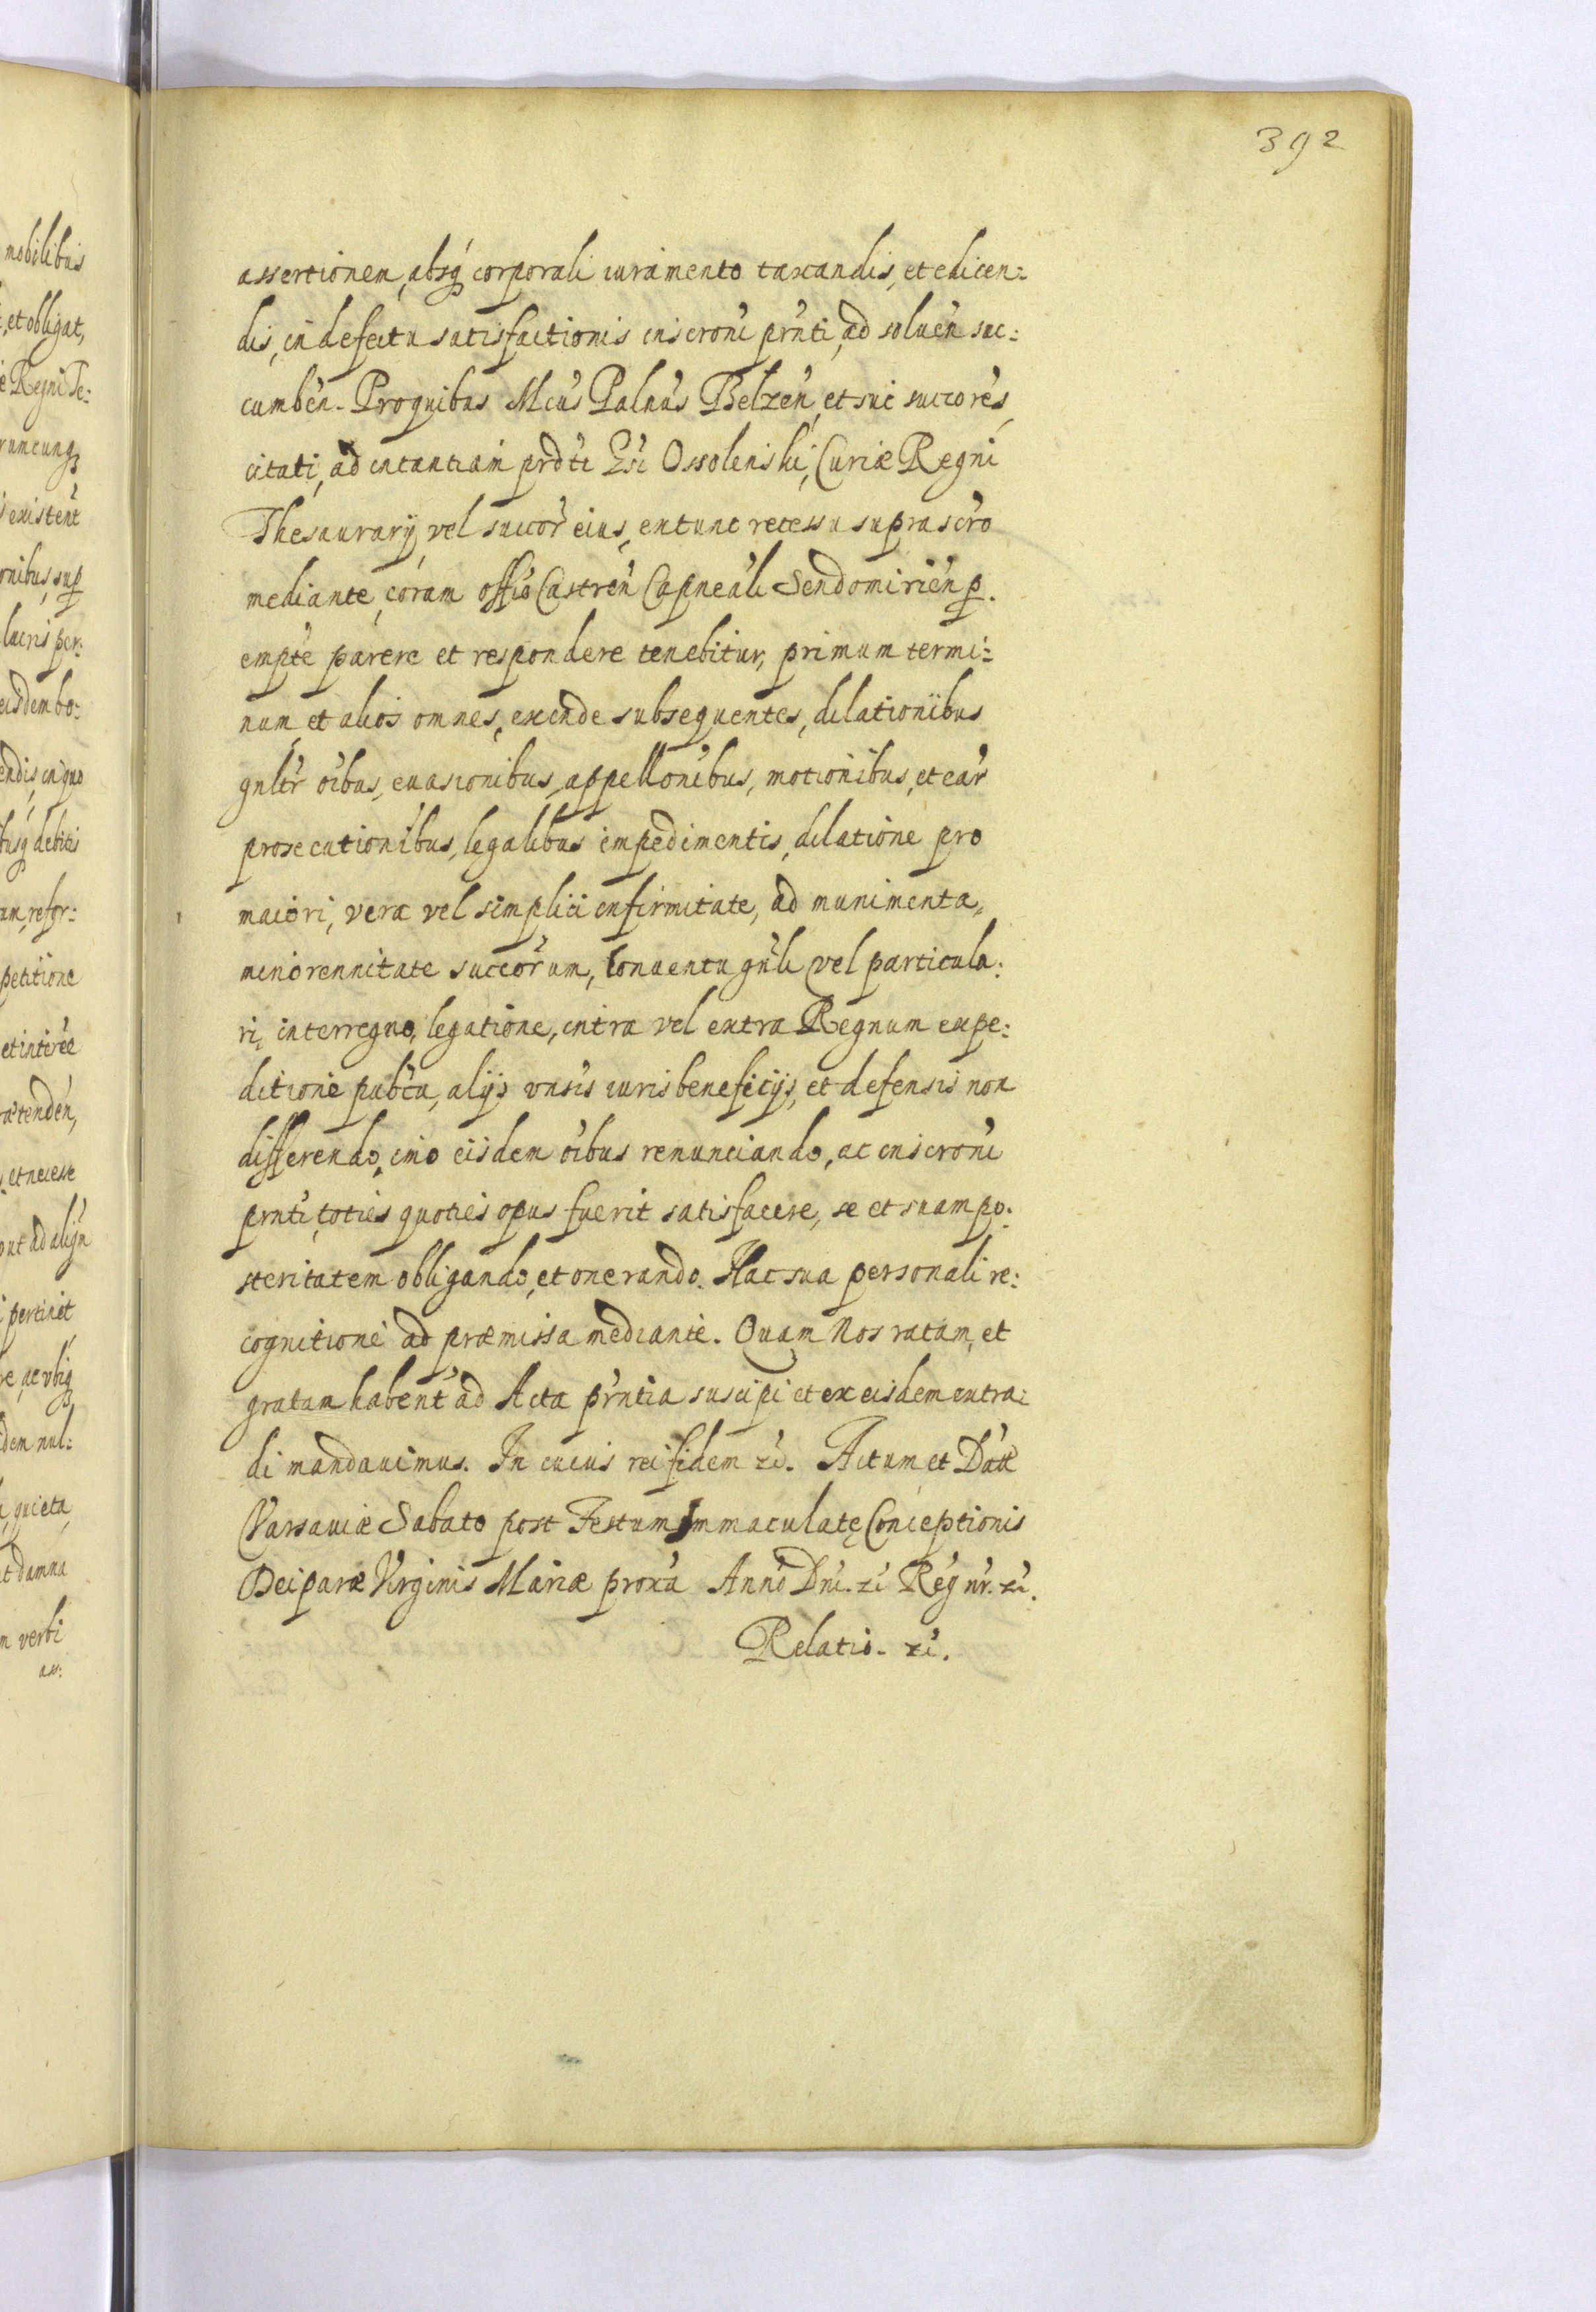 392
assertionem, absq́ corporali iuramento taxandis, et edicen:
dis, in defectu satisfactionis inscroni prńti, ad soluen suc:
cumben. Pro quibus Mcus Palnus Belzen, et sui succores
citati, ad instantiam prdti Ossolenski, Curiæ Regni
Thesaurarij, vel succor eius, extunc recessu suprascro
mediante, coram offio Castren Capneali Sendomirien p
empte parere et respondere tenebitur, primum termi:
num et alios omnes, exinde subsequentes, dilationibus
gnltr oibus, euasionibus, appellonibus, motionibus, et ear
prosecutionibus, legalibus impedimentis, dilatione pro
maiori, vera vel simplici infirmitate, ad munimenta,
minorennitate succorum, Conuentu gnli vel particula:
ri, interregno, legatione, intra vel extra Regnum expe:
ditione pubca, alijs vnsis iuris beneficijs, et defensis non
differendo, imo eisdem oibus renunciando, ac inscroni
prnti, toties quoties opus fuerit satisfacere, se et suam po:
steritatem obligando, et onerando. Hac sua personali re:
cognitione ad præmissa mediante. Quam Nos ratam, et
gratam habent ad Acta prntia suscipi et ex eisdem extra:
di mandauimus. In cuius rei fidem zi. Actum et Datt
Varsauiæ Sabato post Festum Immaculatę Conceptionis
Deiparæ Virginis Mariæ proxa Anno Dni. zi Reg nr. zi.
Relatio. zi.
mobilibus
et obligat,
Regni Te:
runcunq
existent
onibus, sup
lucris per:
eisdem bo:
endis, in quo
busq debitis
am, refor:
petitione
et interee
rætenden,
et necesse
out ad alijn
pertinet
re, ac vbiq
dem nul:
quieta,
et damna
m verbi
as: